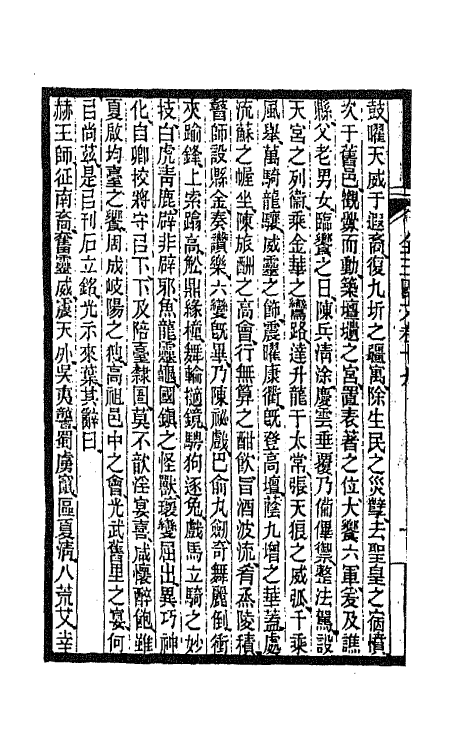 鼓曜天威于遐裔復九圻之疆寓除生民之災孽去聖皇之宿憤
次于舊邑觀釁而動築壇壝之宮置表著之位大饗六軍爰及譙
縣父老男女臨饗之日陳兵清涂慶雲垂覆乃備蹕禦整法駕設
天宮之列衛乘金華之鸞路達升龍于太常張天狼之威弧千乘
風舉萬騎龍驤威靈之飾震曜康衢旣登高壇蔭九增之華蓋處
流蘇之幄坐陳旅酬之高會行無算之酣飲旨酒波流肴烝陵積
瞽師設縣金奏讚樂六變旣畢乃陳祕戲巴俞丸劍奇舞麗倒衝
夾踰鋒上索蹹高舩鼎緣橦舞輪擿鏡騁狗逐兔戲馬立騎之妙
技白虎青鹿辟非辟邪魚龍靈龜國鎮之怪獸瓌變屈出異巧神
化自卿校將守㠯下下及陪臺隸圉莫不歆淫宴喜咸懷醉飽雖
夏啟均臺之饗周成岐陽之㣯高祖邑中之會光武舊里之宴何
㠯尚茲是㠯刊石立銘光示來葉其辭曰
赫王師征南裔奮靈威震天外吳夷讋蜀虜竄區夏清八荒艾幸